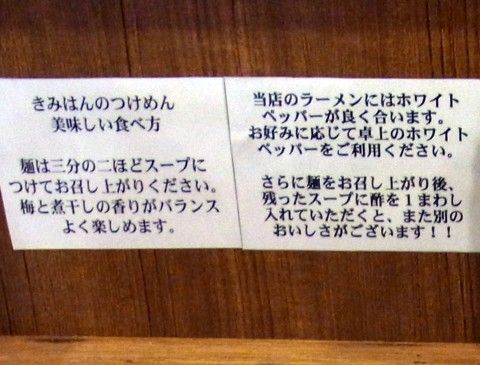 きみはんのつけめん
美味しい食べ方
麺は三分の二ほどスープに
つけてお召し上がりください。
梅と煮干しの香りがバランス
よく楽しめます。
当店のラーメンにはホワイト
ペッパーが良く合います。
お好みに応じて卓上のホワイト
ペッパーをご利用ください。
さらに麺をお召し上がり後、
残ったスープに酢を１まわし
入れていただくと、また別の
おいしさがございます！！